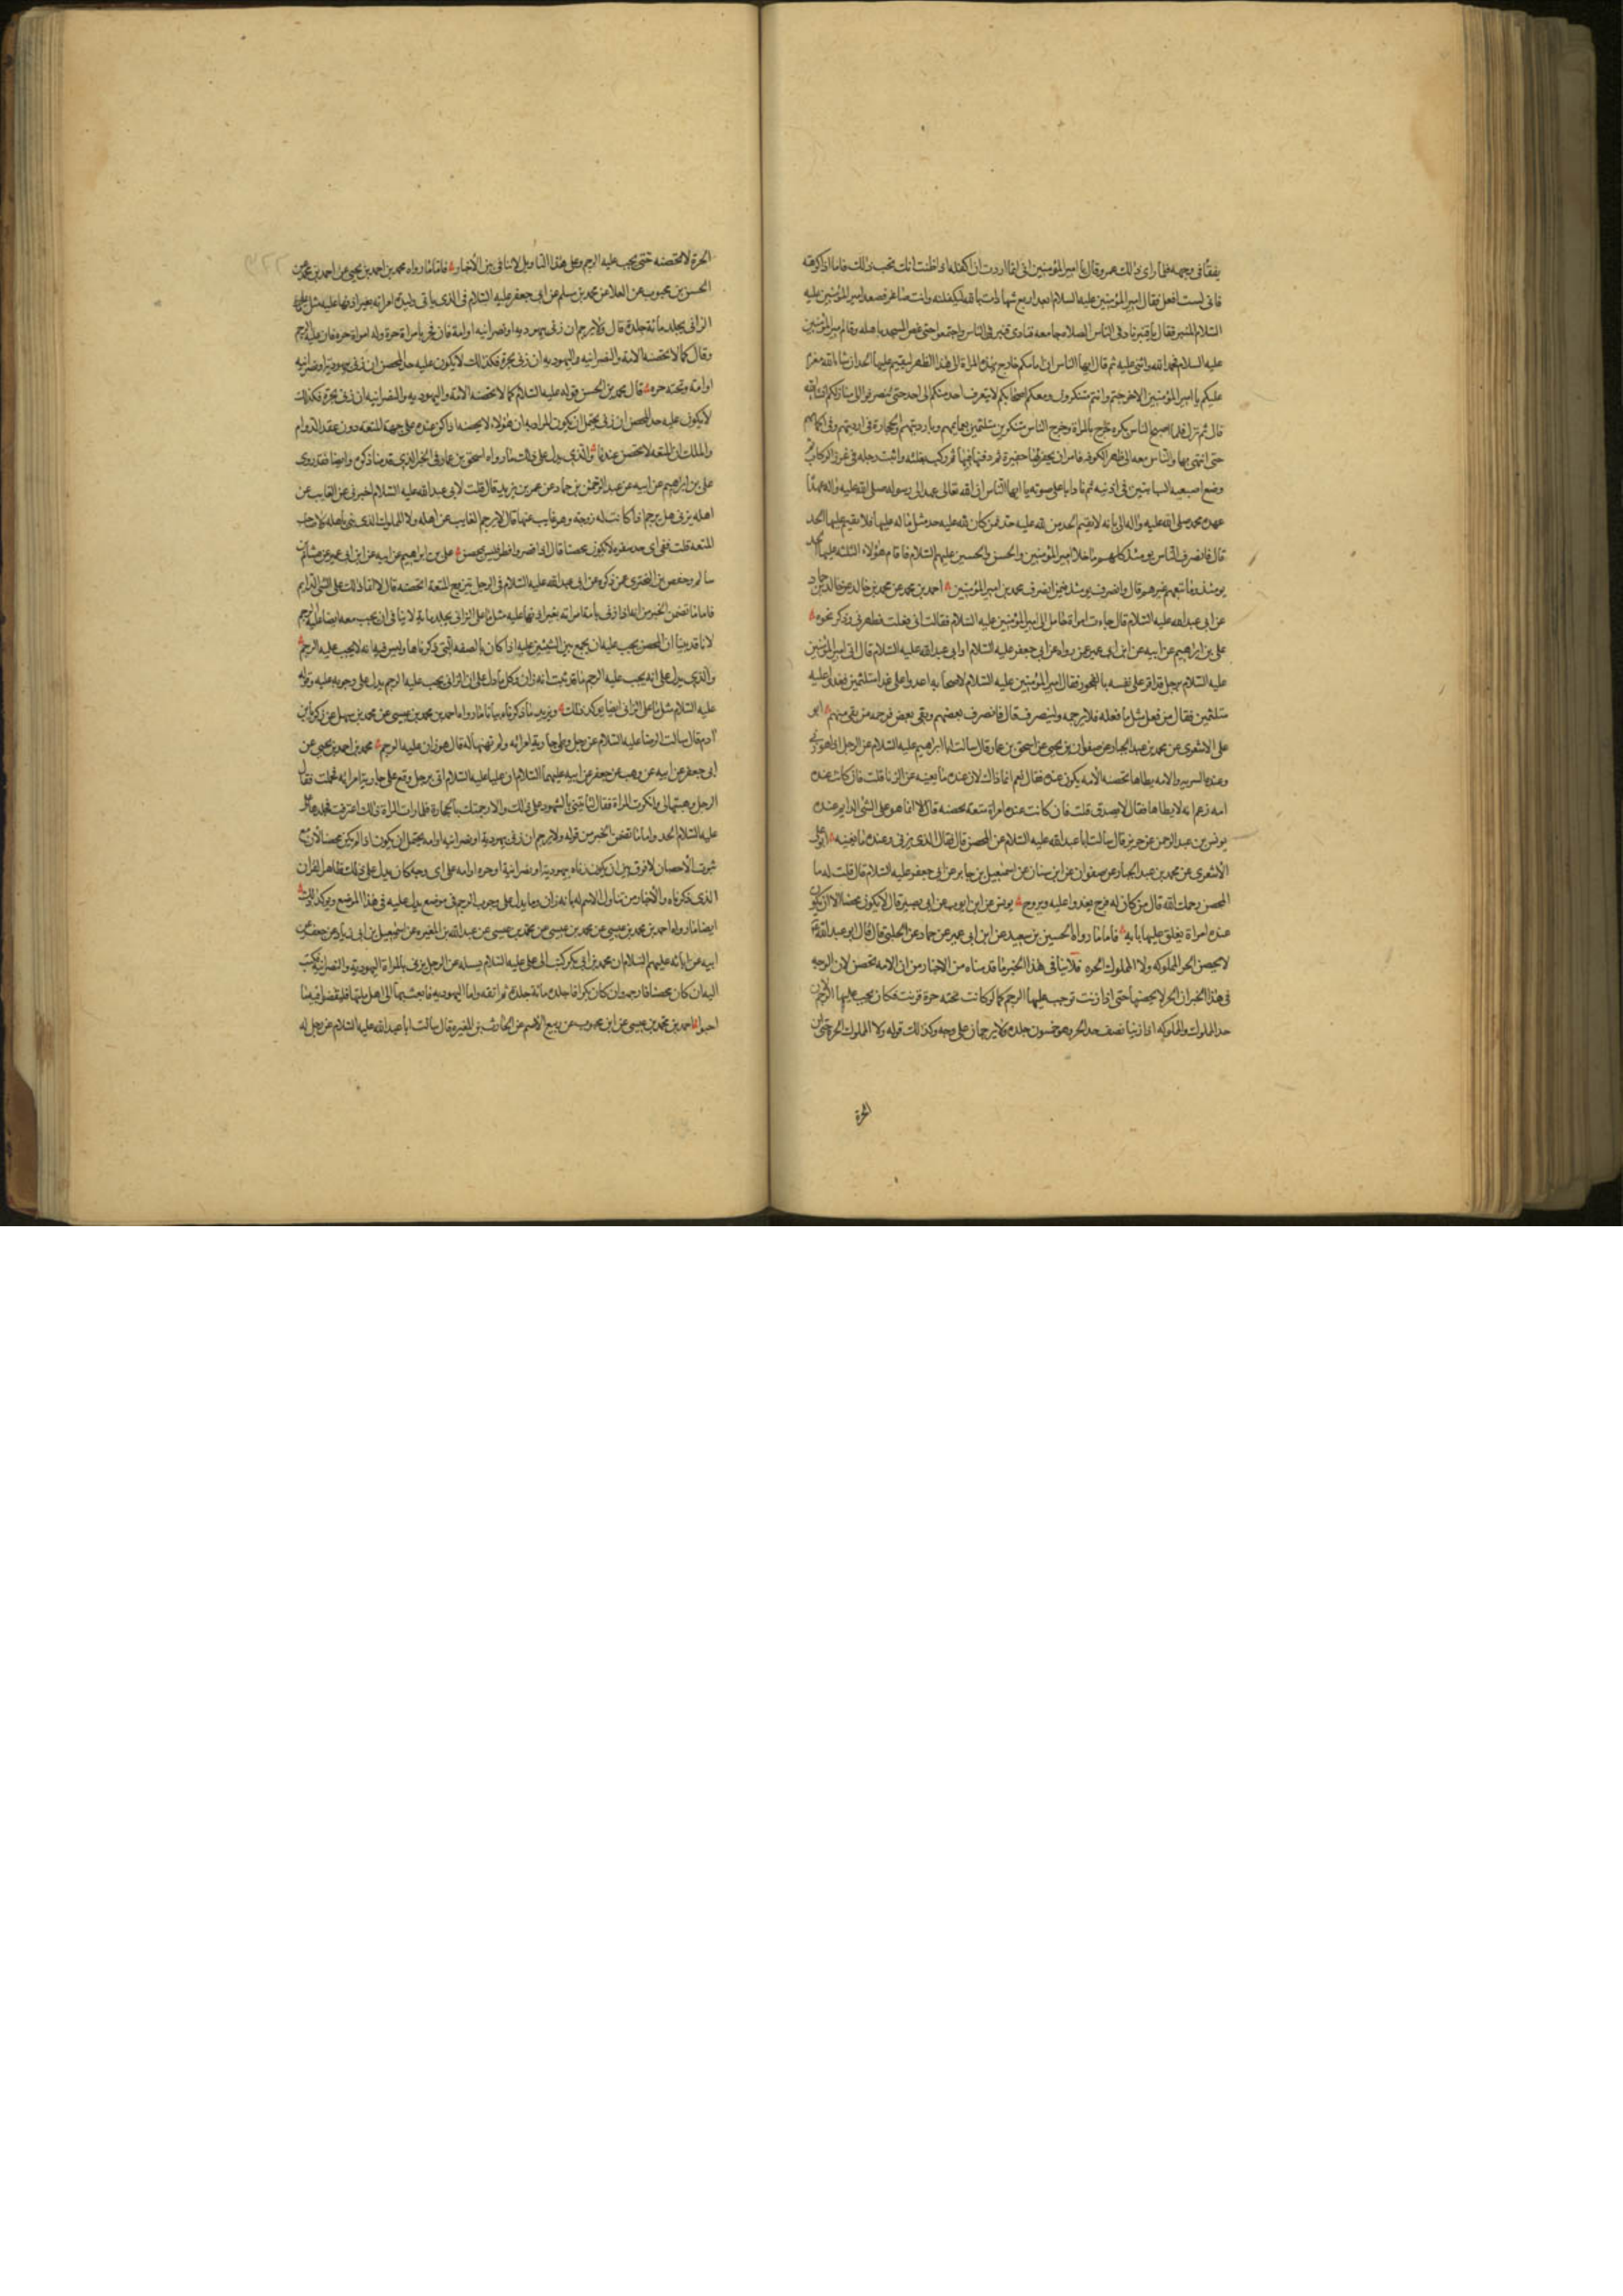 يفقأ في وجهه فلما راى ذلك عمرو قال يا امير المؤمنين اني انما اردت ان اكفله اذ ظننت انك تحب ذلك فاما اذا كرهته
فاني لست افعل فقال امير المؤمنين عليه السلام ابعد اربع شهادات بالله لتكفلنه وانت صاغر فصعد امير المؤمنين عليه
السلام المنبر فقال يا قنبر ناد في الناس الصلاه جامعه فنادى قنبر في الناس واجتمعوا حتى غص المسجد باهله وقام امير المؤمنين
عليه السلام فحمد الله واثنى عليه ثم قال ايها الناس ان امامكم خارج بهذه المراة الى هذا الظهر ليقيم عليها الحد ان شا الله فعزم
عليكم يا امير المؤمنين الا خرجتم وانتم متنكرون ومعكم احجاركم لا يتعرف احد منكم الى احد حتى تنصرفوا الى منازلكم انشا الله
قال ثم نزل فلما اصبح الناس بكره خرج بالمراة وخرج الناس متنكرين متلثمين بعمايمهم وبارديتهم والحجارة في ارديتهم وفي اكمامهم
حتى انتهى بها والناس معه الى ظهر الكوفه فامر ان يحفر لها حفيرة ثم دفنها فيها ثم ركب بغلته واثبت رجله في غرز الركاب ثم
وضع اصبعيه السبابتين في اذنيه ثم نادا باعلى صوته يا ايها الناس ان الله تعالى عهد الى رسوله صلى الله عليه واله عهدا
عهده محمد صلى الله عليه واله الي بانه لا يقيم الحد من لله عليه حد فمن كان لله عليه حد مثل ما له عليها فلا يقيم عليها الحد
قال فانصرف الناس يومئذ كلهم ما خلا امير المؤمنين والحسن والحسين عليهم السلام فاقام هؤلاء الثلثه عليها الحد
يومئذ وما معهم غيرهم قال وانصرف يومئذ فيمن انصرف محمد بن امير المؤمنين احمد بن محمد عن محمد بن خالد عن خلف بن حماد
عن ابي عبد الله عليه السلام قال جاءت امراة حامل الى امير المؤمنين عليه السلام فقالت اني فعلت فطهرني وذكر نحوه
علي بن ابراهيم عن ابيه عن ابن ابي عمير عمن رواه عن ابي جعفر عليه السلام او ابي عبد الله عليه السلام قال اتي امير المؤمنين
عليه السلام برجل قد اقر على نفسه بالفجور فقال امير المؤمنين عليه السلام لاصحابه اغدوا علي غدا متلثمين فغدوا عليه
متلثمين فقال من فعل مثل ما فعله فلا يرجمه ولينصرف قال فانصرف بعضهم وبقي بعض فرجمه من بقي منهم ابو
علي الاشعري عن محمد بن عبد الجبار عن صفوان بن يحيى عن اسحق بن عمار قال سالت ابا ابراهيم عليه السلام عن الرجل اذا هو زنى
وعنده السريه والامه يطاها تحصنه الامه يكون عنده فقال نعم انما ذاك لان عنده ما يغنيه عن الزنا قلت فان كانت عنده
امه زعم انه لا يطاها فقال لا يصدق قلت فان كانت عنده امراة متعه تحصنه قال لا انما هو على الشي الدايم عنده
يونس بن عبد الرحمن عن حريز قال سالت ابا عبد الله عليه السلام عن المحصن قال فقال الذي يزني وعنده ما يغنيه ابو علي
الاشعري عن محمد بن عبد الجبار عن صفوان عن ابن سنان عن اسمعيل بن جابر عن ابي جعفر عليه السلام قال قلت له ما
المحصن رحمك الله قال من كان له فرج يغدوا عليه ويروح يونس عن ابي ايوب عن ابي بصير قال لا يكون محصنا الا ان يكون
عنده امراة يغلق عليها بابه فاما ما رواه الحسين بن سعيد عن ابن ابي عمير عن حماد عن الحلبي قال قال ابو عبد الله
لا يحصن الحر المملوكه ولا المملوك الحره فلا ينافي هذا الخبر ما قدمناه من الاخبار من ان الامه تحصن لان الوجه
في هذا الخبر ان الحر لا يحصنها حتى اذا زنت توجب عليها الرجم كما لو كانت تحته حرة فزنت فكان يجب عليها الرجم لان
حد المملوك والمملوكه اذا زنيا نصف حد الحر وهو خمسون جلده ولا يرجمان على وجه وكذلك قوله ولا المملوك الحرة يعني ان
الحرة
الحرة لا تحصنه حتى يجب عليه الرجم وعلى هذا التاويل لا تنافي بين الاخبار فاما ما رواه محمد بن احمد بن يحيى عن احمد بن محمد عن
الحسن بن محبوب عن العلا عن محمد بن مسلم عن ابي جعفر عليه السلام في الذي ياتي وليدة امراته بغير اذنها عليه مثل ما على
الزاني يجلد مائة جلدة قال ولا يرجم ان زنى بيهوديه او نصرانيه او امة فان فجر بامراة حرة وله امراة حره فان عليه الرجم
وقال كما لا تحصنه الامه والنصرانيه واليهوديه ان زنى بحرة فكذلك لا يكون عليه حد المحصن ان زنى بيهودية او نصرانيه
او امة وتحته حره قال محمد بن الحسن قوله عليه السلام كما لا تحصنه الامة واليهوديه والنصرانيه ان زنى بحرة فكذلك
لا يكون عليه حد المحصن ان زنى يحتمل ان يكون المراد به ان هؤلاء لا يحصنه اذا كن عنده على جهة المتعه دون عقد الدوام
والملك لان المتعه لا تحصن عندنا والذي يدل على ذلك ما رواه اسحق بن عمار في الخبر الذي قدمنا ذكره وايضا فقد روى
علي بن ابراهيم عن ابيه عن عبد الرحمن بن حماد عن عمر بن يزيد قال قلت لابي عبد الله عليه السلام اخبرني عن الغايب عن
اهله يزني هل يرجم اذا كانت له زوجة وهو غايب عنها قال لا يرجم الغايب عن اهله ولا المملك الذي لم يبن باهله ولا صاحب
المتعه قلت ففي اي حد سفره لا يكون محصنا قال اذا قصر وافطر فليس بمحصن علي بن ابراهيم عن ابيه عن ابن ابي عمير عن هشام بن
سالم وحفص بن البختري عمن ذكره عن ابي عبد الله عليه السلام في الرجل يتزوج المتعة اتحصنه قال لا انما ذاك على الشي الدايم
فاما ما تضمن الخبر من انه اذا زنى بامة امراته بغير اذنها عليه مثل ما على الزاني يجلد ماية لا ينافي ان يجب معه ايضا عليه الرجم
لانا قد بينا ان المحصن يجب عليه ان يجمع بين الشيئين عليه اذا كان بالصفه التي ذكرناها وليس فيه انه لا يجب عليه الرجم
والذي يدل على انه يجب عليه الرجم ما قد ثبت انه زان وكل ما دل على ان الزاني يجب عليه الرجم يدل على وجوبه عليه وقوله
عليه السلام مثل ما على الزاني ايضا يوكد ذلك ويزيد ما ذكرناه بيانا ما رواه احمد بن محمد بن عيسى عن محمد بن سهل عن زكريا بن
ادم قال سالت الرضا عليه السلام عن رجل وطي جارية امراته ولم تهبها له قال هو زان عليه الرجم محمد بن احمد بن يحيى عن
ابي جعفر عن ابيه عن وهب عن جعفر عن ابيه عليهما السلام ان عليا عليه السلام اتي برجل وقع على جارية امراته فحملت فقال
الرجل وهبتها لي وانكرت المراة فقال لتاتيني بالشهود على ذلك والا رجمتك بالحجارة فلما رات المراة ذلك اعترفت فجلدها علي
عليه السلام الحد واما ما تضمن الخبر من قوله ولا يرجم ان زنى بيهودية او نصرانيه او امه يحتمل ان يكون اذا لم يكن محصنا لان مع
ثبوت الاحصان لا فرق بين ان يكون زناه بيهودية او نصرانية او حره او امه على اي وجه كان يدل على ذلك ظاهر القران
الذي ذكرناه والاخبار من تناول الاسم له بانه زان وما يدل على وجوب الرجم في موضع يدل عليه في هذا الموضع ويوكد ذلك
ايضا ما رواه احمد بن محمد بن عيسى عن محمد بن عيسى عن عبد الله بن المغيره عن اسمعيل بن ابي زياد عن جعفر عن
ابيه عن ابائه عليهم السلام ان محمد بن ابي بكر كتب الى علي عليه السلام يسله عن الرجل يزني بالمراة اليهودية والنصرانية فكتب
اليه ان كان محصنا فارجمه وان كان بكرا فاجلده مائة جلدة ثم انفه واما اليهوديه فابعث بها الى اهل ملتها فليقضوا فيها ما
احبوا احمد بن محمد بن عيسى عن ابن محبوب عن ربيع الاصم عن الحارث بن المغيره قال سالت ابا عبد الله عليه السلام عن رجل له